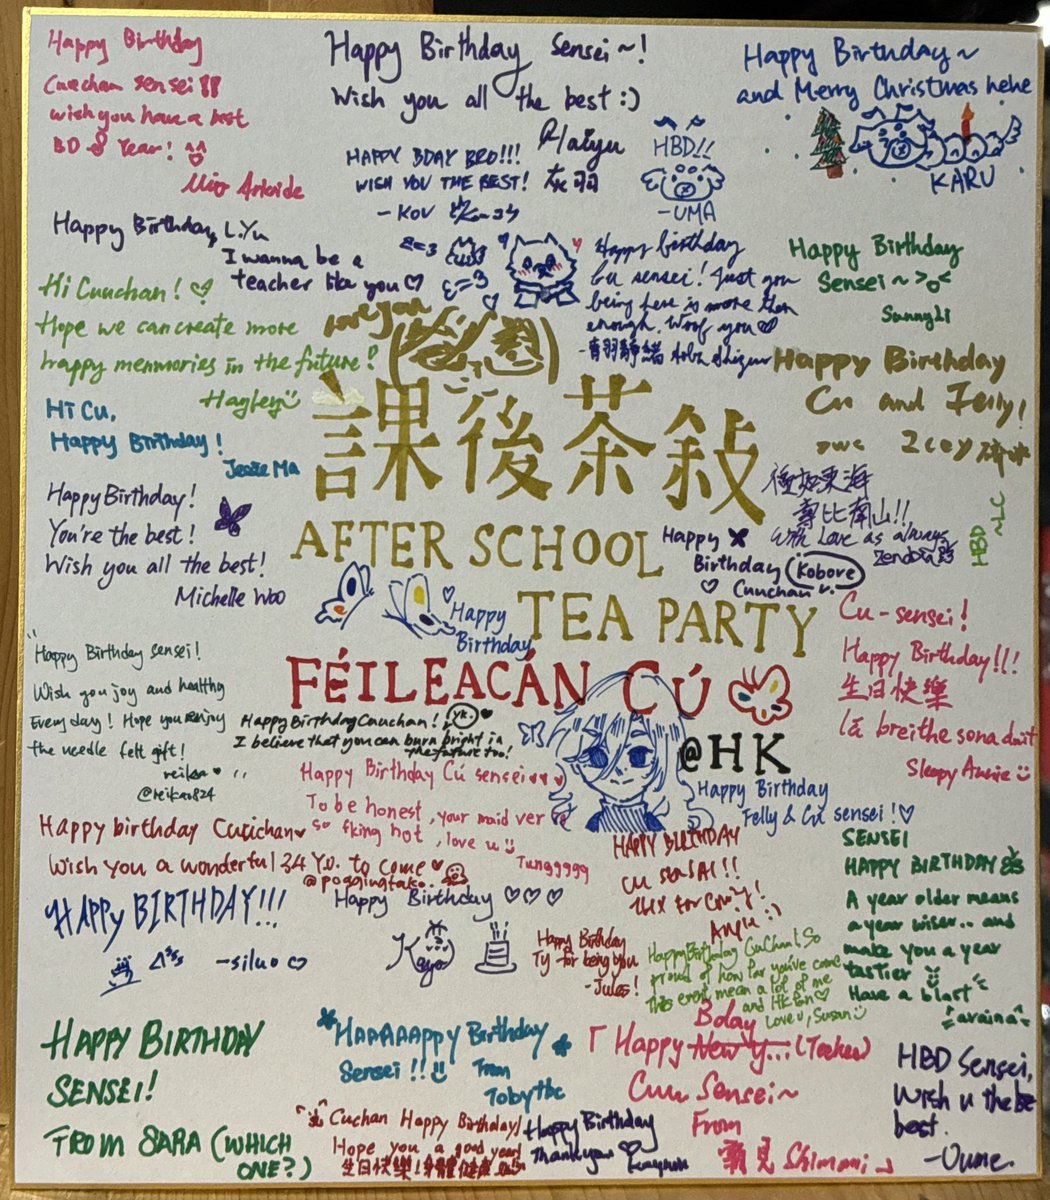 Happy Birthday
Cuuchan sensei!!
wish you have a best
BD & Year! ^^
Happy Birthday Sensei~!
Wish you all the best :)
Haiyu
HAPPY BDAY BRO!!!
WISH YOU THE BEST!
- KOV
HBD!!
-UMA
Happy Birthday~
and Merry Christmas hehe
KARU
Happy Birthday, LiYu
I wanna be a
teacher like you♡
Happy birthday
Cu sensei! Just you
being here is more than
enough. Woof you♡
- 青羽靜緒 Aoba Shizuo
Happy Birthday
Sensei~ >o<
Sunny Li
Hi Cuuchan! ♡
Hope we can create more
happy memmories in the future!
Hayley
Happy Birthday
Cu and Felly!
owo Icey
Hi Cu,
Happy Birthday!
Jessie Ma
課後茶敍
AFTER SCHOOL
TEA PARTY
FÉILEACÁN CÚ
@HK
Happy Birthday!
You're the best!
Wish you all the best!
Michelle Woo
壽比南山!!
With Love as always
HBD
Happy
Birthday Kobore
♡ Cuuchan
Happy
Birthday
Cu-sensei!
Happy Birthday!!!
生日快樂
Lá breithe sona duit
Sleepy Annie
Happy Birthday sensei!
Wish you joy and healthy
Everyday! Hope you enjoy
the needle felt gift!
reika ♥
@reikao824
Happy Birthday Cuuchan! yk. ♥
I believe that you can burn bright in
the future too!
Happy Birthday Cú sensei♥♥♡
To be honest, your maid ver is
so fking hot, love u
Tunggggg
Happy Birthday
Felly & Cú sensei!♡
Happy birthday Cuuchan♥
Wish you a wonderful 34 Y.O. to come♥
@poggingtako
HAPPY BIRTHDAY
CU SENSEI!!
Angie :)
SENSEI
HAPPY BIRTHDAY
A year older means
a year wiser.. and
make you a year
tastier
Have a blast
avaina
HAPPY BIRTHDAY!!!
-siluo♡
Happy Birthday ♡♡♡
Kayo
Happy Birthday
Ty for being you
-Jules!
Happy Birthday CuChan! So
proud of how far you've come
This event mean a lot of me
and HK fan♡
Love u, Susan
HAPPY BIRTHDAY
SENSEI!
FROM SARA (WHICH
ONE?)
*HAAAAAAppy Birthday *
Sensei!!
From
Tobytbc
Bday
「Happy New Y...(Tookew)
Cuu Sensei~
From
霸見 Shimami」
HBD Sensei,
Wish u the be
best.
-Oune.
Cuchan Happy Birthday!
Hope you a good year!
生日快樂!身體健康
Happy Birthday
Thank you ♡